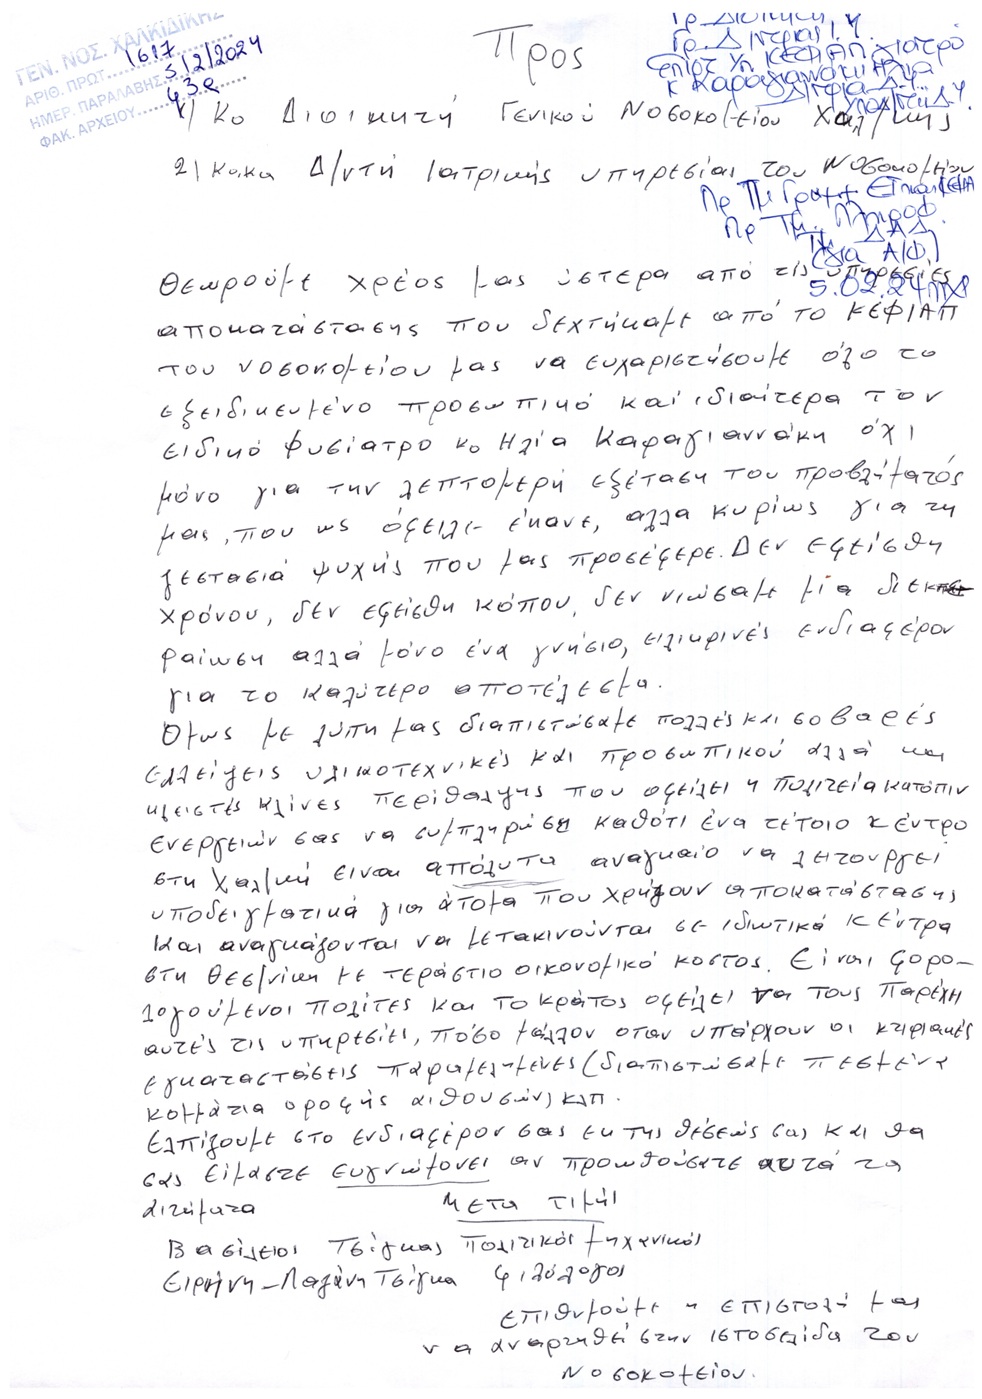 ΓΕΝ. ΝΟΣ. ΧΑΛΚΙΔΙΚΗΣ
ΑΡΙΘ. ΠΡΩΤ. 1617
ΗΜΕΡ. ΠΑΡΑΛΑΒΗΣ 5/2/2024
ΦΑΚ. ΑΡΧΕΙΟΥ
Προς
Γρ. Διοικητή
1) Κο Διοικητή Γενικού Νοσοκομείου Χαλ/κής
2) Κακα Δ/ντή Ιατρικής υπηρεσίας του Νοσοκομείου
Πρ Τμ. Πληροφ.
5.02.24
Θεωρούμε χρέος μας ύστερα από τις υπηρεσίες
αποκατάστασης που δεχτήκαμε από το ΚΕΦΙΑΠ
του νοσοκομείου μας να ευχαριστήσουμε όλο το
εξειδικευμένο προσωπικό και ιδιαίτερα τον
ειδικό φυσίατρο κο Ηλία Καραγιαννάκη όχι
μόνο για την λεπτομερή εξέταση του προβλήματός
μας, που ως όφειλε έκανε, αλλα κυρίως για τη
ζεστασιά ψυχής που μας προσέφερε. Δεν εφείσθη
χρόνου, δεν εφείσθη κόπου, δεν νιώσαμε μία διεκ
ραίωση αλλά μόνο ένα γνήσιο, ειλικρινές ενδιαφέρον
για το καλύτερο αποτέλεσμα.
Όμως με λύπη μας διαπιστώσαμε πολλές και σοβαρές
ελλείψεις υλικοτεχνικές και προσωπικού αλλά και
κλειστές κλίνες περίθαλψης που οφείλει η πολιτεία κατόπιν
ενεργειών σας να συμπληρώση καθότι ένα τέτοιο κέντρο
στη Χαλ/κή είναι απόλυτα αναγκαίο να λειτουργεί
υποδειγματικά για άτομα που χρήζουν αποκατάστασης
και αναγκάζονται να μετακινούνται σε ιδιωτικά κέντρα
στη Θεσ/νίκη με τεράστιο οικονομικό κοστος. Είναι φορο-
λογούμενοι πολίτες και το κράτος οφείλει να τους παρέχη
αυτές τις υπηρεσίες, πόσο μάλλον οταν υπάρχουν οι κτιριακές
εγκαταστάσεις παραμελημένες (διαπιστώσαμε πεσμένα
κομμάτια οροφής αιθουσών) κλπ.
Ελπίζουμε στο ενδιαφέρον σας εκ της θέσεώς σας και θα
σας είμαστε ευγνώμονες αν προωθούσατε αυτά τα
αιτήματα
Μετα τιμής
Βασίλειος Τσίγκας πολιτικός μηχανικός
Ειρήνη - Λαζάνη Τσίγκα φιλόλογος
επιθυμούμε η επιστολή μας
να αναρτηθεί στην ιστοσελίδα του
Νοσοκομείου.